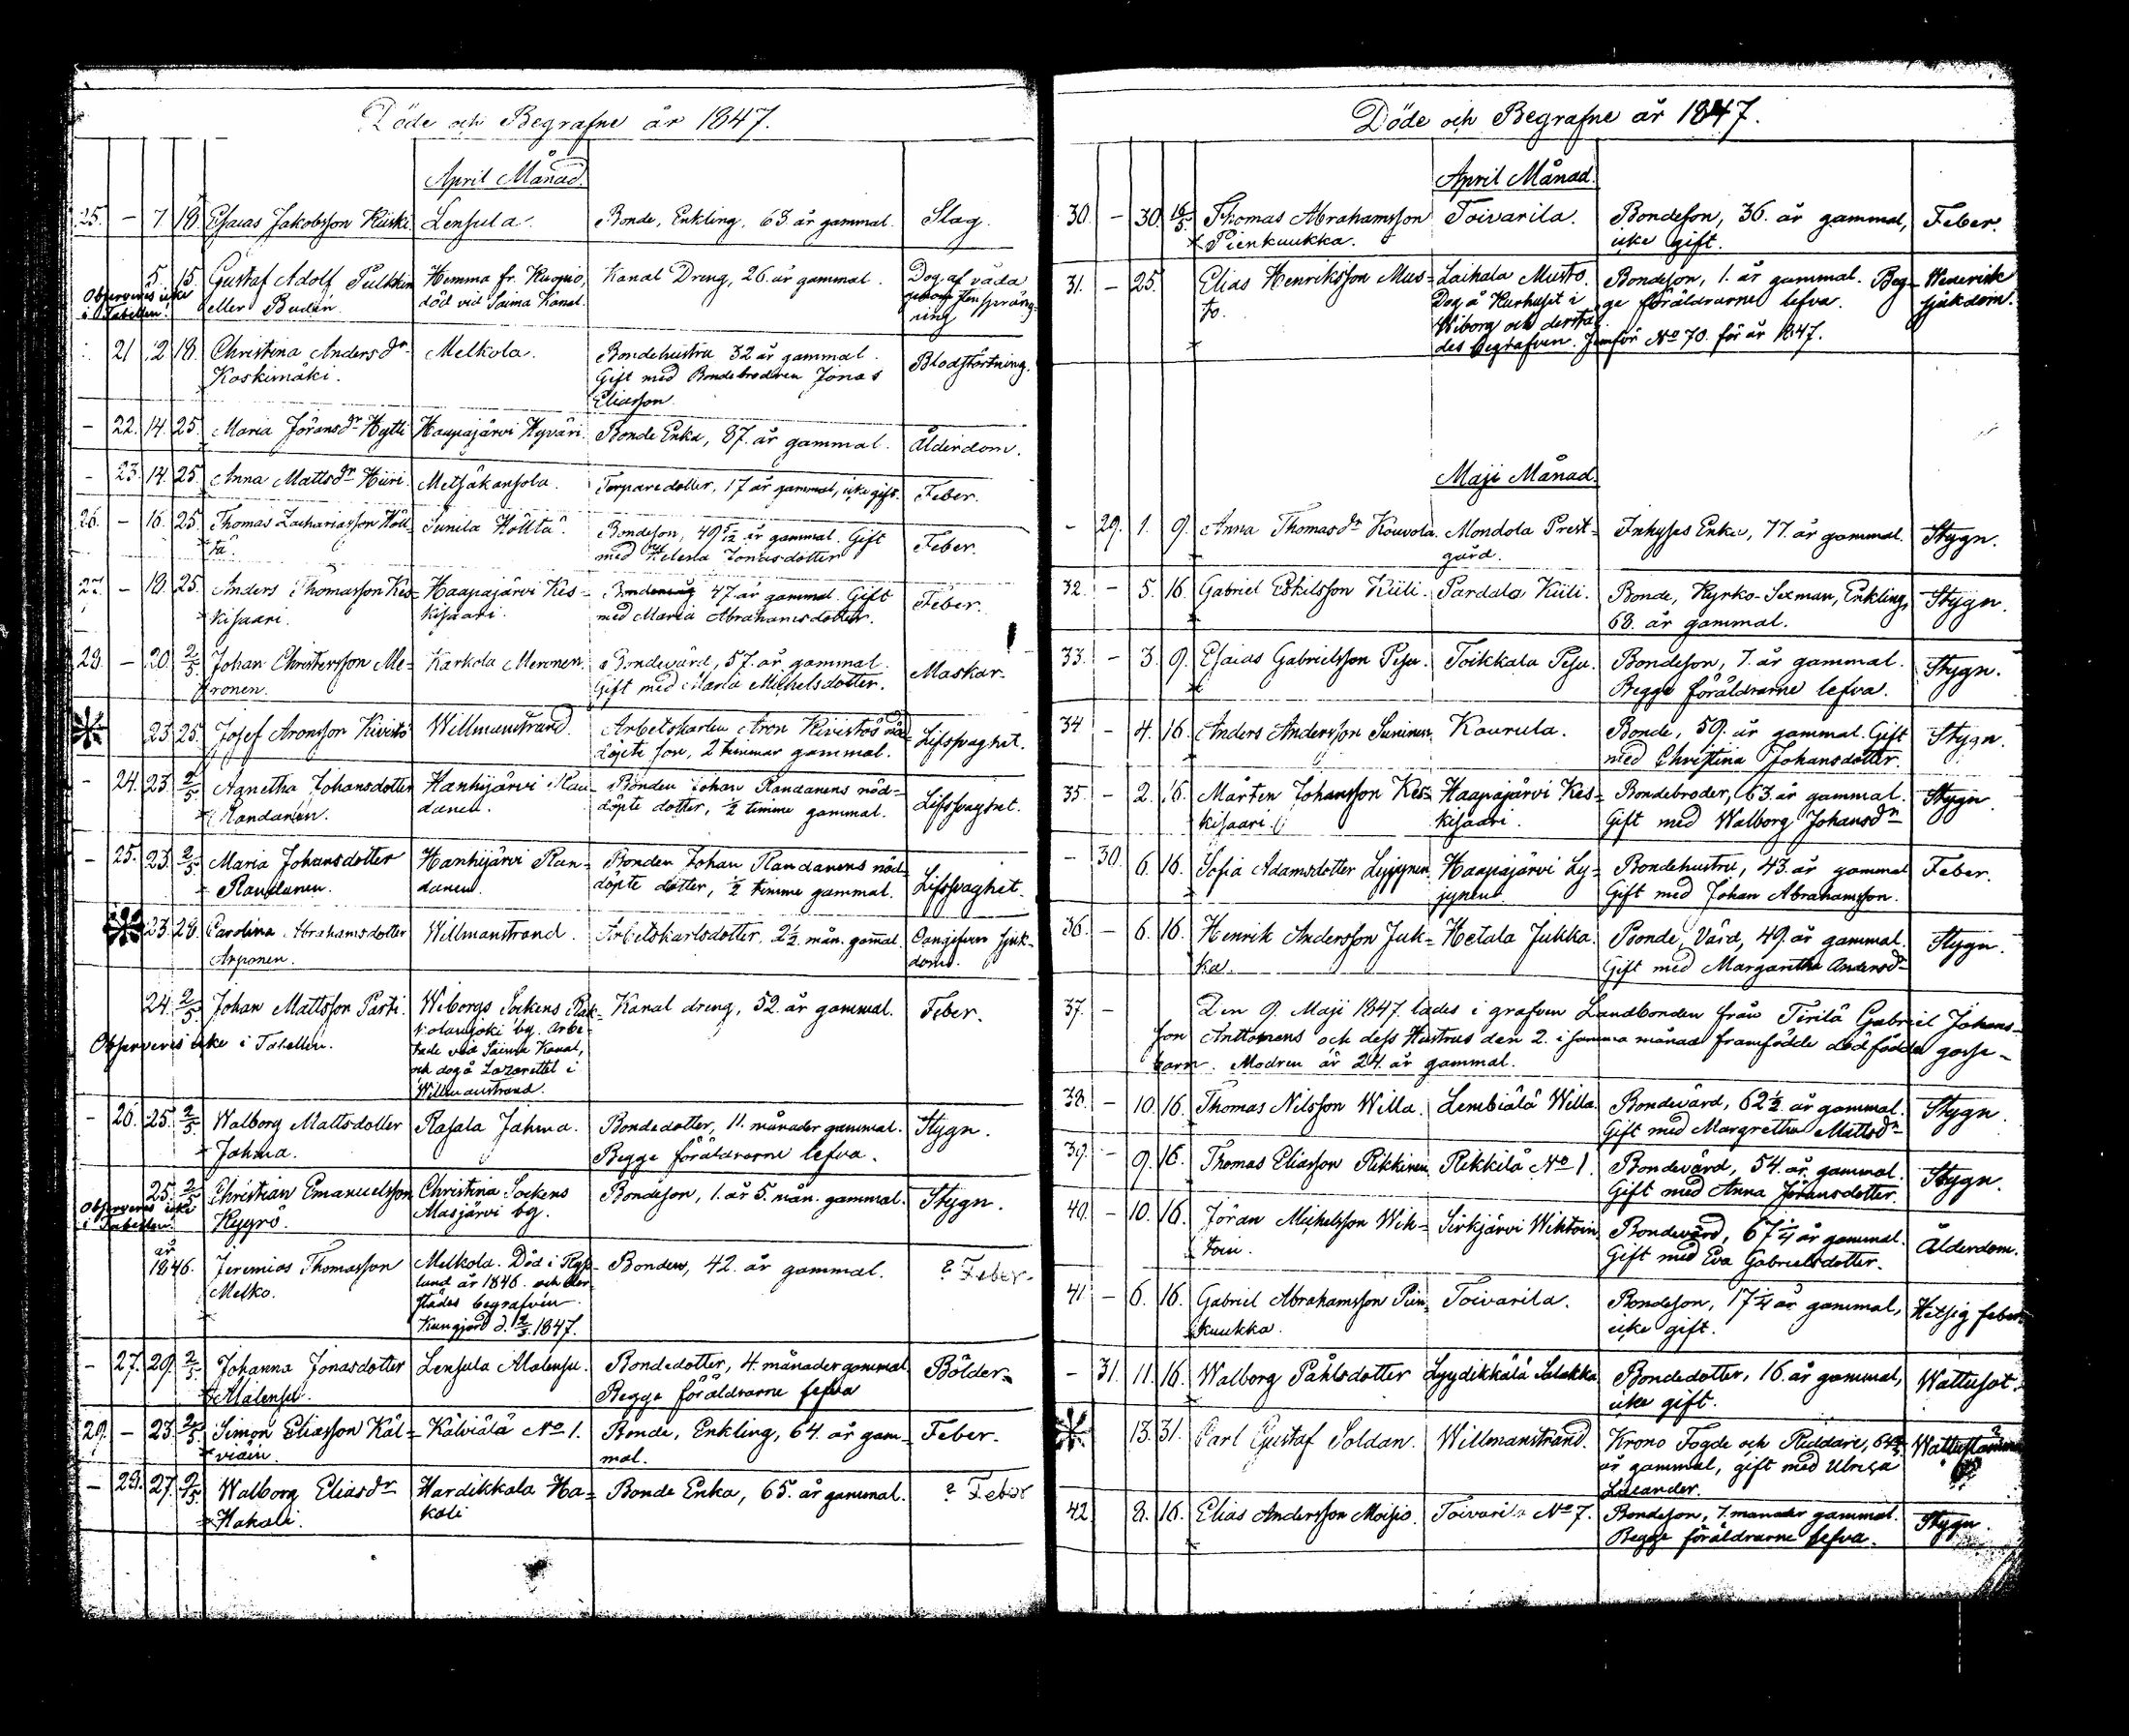 Döde och Begrafne år 1847.
April Månad.
25. – 7 18. Esaias Jakobsson Kiiski Lensula. Bonde, Enkling, 63 år gammal. Slag.
5 15. Gustaf Adolf Pulkkin Hemma fr. Kuopio, Kanal Dreng, 26 år gammal. Dog af våda
Observeras icke eller Budén. död vid Saima Kanal. spräng-
i Tabellen. ning
21 2 18. Christina Andersdr Melkola. Bondehustru 32 år gammal. Blodstörtning.
Koskimäki. Gift med Bondebrodren Jonas
Eliasson.
– 22. 14. 25. Maria Jöransdr Hytti Haapajärvi Hyväri. Bonde Enka, 87. år gammal. Ålderdom.
– 23. 14. 25. Anna Mattsdr Hiiri. Metsäkansola. Torparedotter, 17 år gammal, icke gift. Feber.
26. – 16. 25. Thomas Zachariasson Höll- Sunila Hölltä. Bondeson, 49 5/12 år gammal. Gift Feber.
tä. med Helena Jonasdotter
27. – 18. 25. Anders Thomasson Kes- Haapajärvi Kes- 47 år gammal. Gift Feber.
kisaari. kisaari. med Maria Abrahamsdotter.
28. – 20. 2/5. Johan Christersson Me- Karkola Meronen. Bondevärd, 57. år gammal. Maskar.
ronen. Gift med Maria Michelsdotter.
23. 25. Josef Aronsson Kivistö Willmanstrand. Arbetskarlen Aron Kivistös nöd- Lifssvaghet.
döpte son, 2 timmar gammal.
– 24. 23. 2/5. Agnetha Johansdotter Hanhijärvi Ran- Bonden Johan Randanens nöd- Lifssvaghet.
Randanen. danen. döpte dotter, 1/2 timme gammal.
– 25. 23. 2/5. Maria Johansdotter Hanhijärvi Ran- Bonden Johan Randanens nöd- Lifssvaghet.
Randanen. danen. döpte dotter, 1/2 timme gammal.
23. 28. Carolina Abrahamsdotter Willmanstrand. Arbetskarlsdotter, 2 1/2 mån. gammal. Oangifven sjuk-
Arponen. dom.
24. 2/5. Johan Mattsson Parti. Wiborgs Sockens Kanal dreng, 52. år gammal. Feber.
by. Arbe-
Observeras icke i Tabellen. tade vid Saima Kanal,
och dog å Lazarettet i
Willmanstrand.
– 26. 25. 2/5. Walborg Mattsdotter Rasala Jahma. Bondedotter, 11. månader gammal. Stygn.
Jahma. Begge föräldrarne lefva.
25. 2/5 Christian Emanuelsson Christina Sockens Bondeson, 1. år 5. mån. gammal. Stygn.
Observeras icke Kyyrö. Masjärvi by.
i Tabellen.
år
1846. Jeremias Thomasson Melkola. Död i Ryss- Bonden, 42. år gammal. ? Feber.
Melko. land år 1846. och der-
städes begrafven.
Kungjord d. 2/5. 1847.
– 27. 29. 2/5. Johanna Jonasdotter Lensula Malensu. Bondedotter, 4. månader gammal Bölder.
Malensu. Begge föräldrarne lefva
29. – 23. 2/5. Simon Eliasson Käl- Kälviälä No 1. Bonde, Enkling, 64. år gam- Feber.
viäin. mal.
– 28. 27. 2/5. Walborg Eliasdr Hardikkala Ha- Bonde Enka, 65. år gammal. ? Feber
Hakali. kali
Döde och Begrafne år 1847.
April Månad.
30. – 30. 16/5. Thomas Abrahamsson Toivarila. Bondeson, 36. år gammal, Feber.
Pienkuukka. icke gift.
31. – 25. Elias Henriksson Mus- Laihala Musto. Bondeson, 1. år gammal. Beg- Venerisk
to. Dog å Kurhuset i ge föräldrarne lefva. sjukdom.
Wiborg och derstä-
des begrafven. Jemför No 70. för år 1847.
Maji Månad.
– 29. 1. 9. Anna Thomasdr Kouvola. Mondola Prest- Inhyses Enka, 77. år gammal. Stygn.
gård.
32. – 5. 16. Gabriel Eskilsson Kiili. Pardala Kiili. Bonde, Kyrko-Sexman, Enkling, Stygn.
68. år gammal.
33. – 3. 9. Esaias Gabrielsson Pesu. Toikkala Pesu. Bondeson, 7. år gammal. Stygn.
Begge föräldrarne lefva.
34 – 4. 16. Anders Andersson Suninen Kaurula. Bonde, 59. år gammal. Gift Stygn.
med Christina Johansdotter.
35. – 2. 16. Mårten Johansson Kes- Haapajärvi Kes- Bondebroder, 63. år gammal. Stygn.
kisaari. kisaari. Gift med Walborg Johansdr
– 30. 6. 16. Sofia Adamsdotter Lyjynen Haapajärvi Ly- Bondehustru, 43. år gammal Feber.
jynen. Gift med Johan Abrahamsson.
36. – 6. 16. Henrik Andersson Juk- Hetala Jukka. Bonde Värd, 49. år gammal. Stygn.
ka. Gift med Margaretha Andersdr
37. – Den 9. Maji 1847. lades i grafven Landbonden från Tirilä Gabriel Johans-
son Anttonens och dess Hustrus den 2. i samma månad framfödde dödfödda gosse-
barn. Modren är 24. år gammal.
38. – 10. 16. Thomas Nilsson Willa. Lembiälä Willa. Bondevärd, 62 1/2 år gammal. Stygn.
Gift med Margretha Mattsdr
39. – 9. 16. Thomas Eliasson Rikkinen Rikkilä No 1. Bondevärd, 54. år gammal. Stygn.
Gift med Anna Jöransdotter.
40. – 10. 16. Jöran Michelsson Wik- Sirkjärvi Wiktoin Bondevärd, 67 1/4 år gammal. Ålderdom.
toin. Gift med Eva Gabrielsdotter.
41 – 6. 16. Gabriel Abrahamsson Pien- Toivarila. Bondeson, 17 1/4 år gammal, Hetsig feber.
kuukka. icke gift.
– 31. 11. 16. Walborg Påhlsdotter Lyydikkälä Salakka Bondedotter, 16. år gammal, Wattusot.
icke gift.
13. 31. Carl Gustaf Soldan. Willmanstrand. Krono Fogde och Riddare, 64
år gammal, gift med Ulrica
Lucander.
42. 8. 16. Elias Andersson Moisio. Toivarila No 7. Bondeson, 7. månader gammal. Stygn.
Begge föräldrarne lefva.